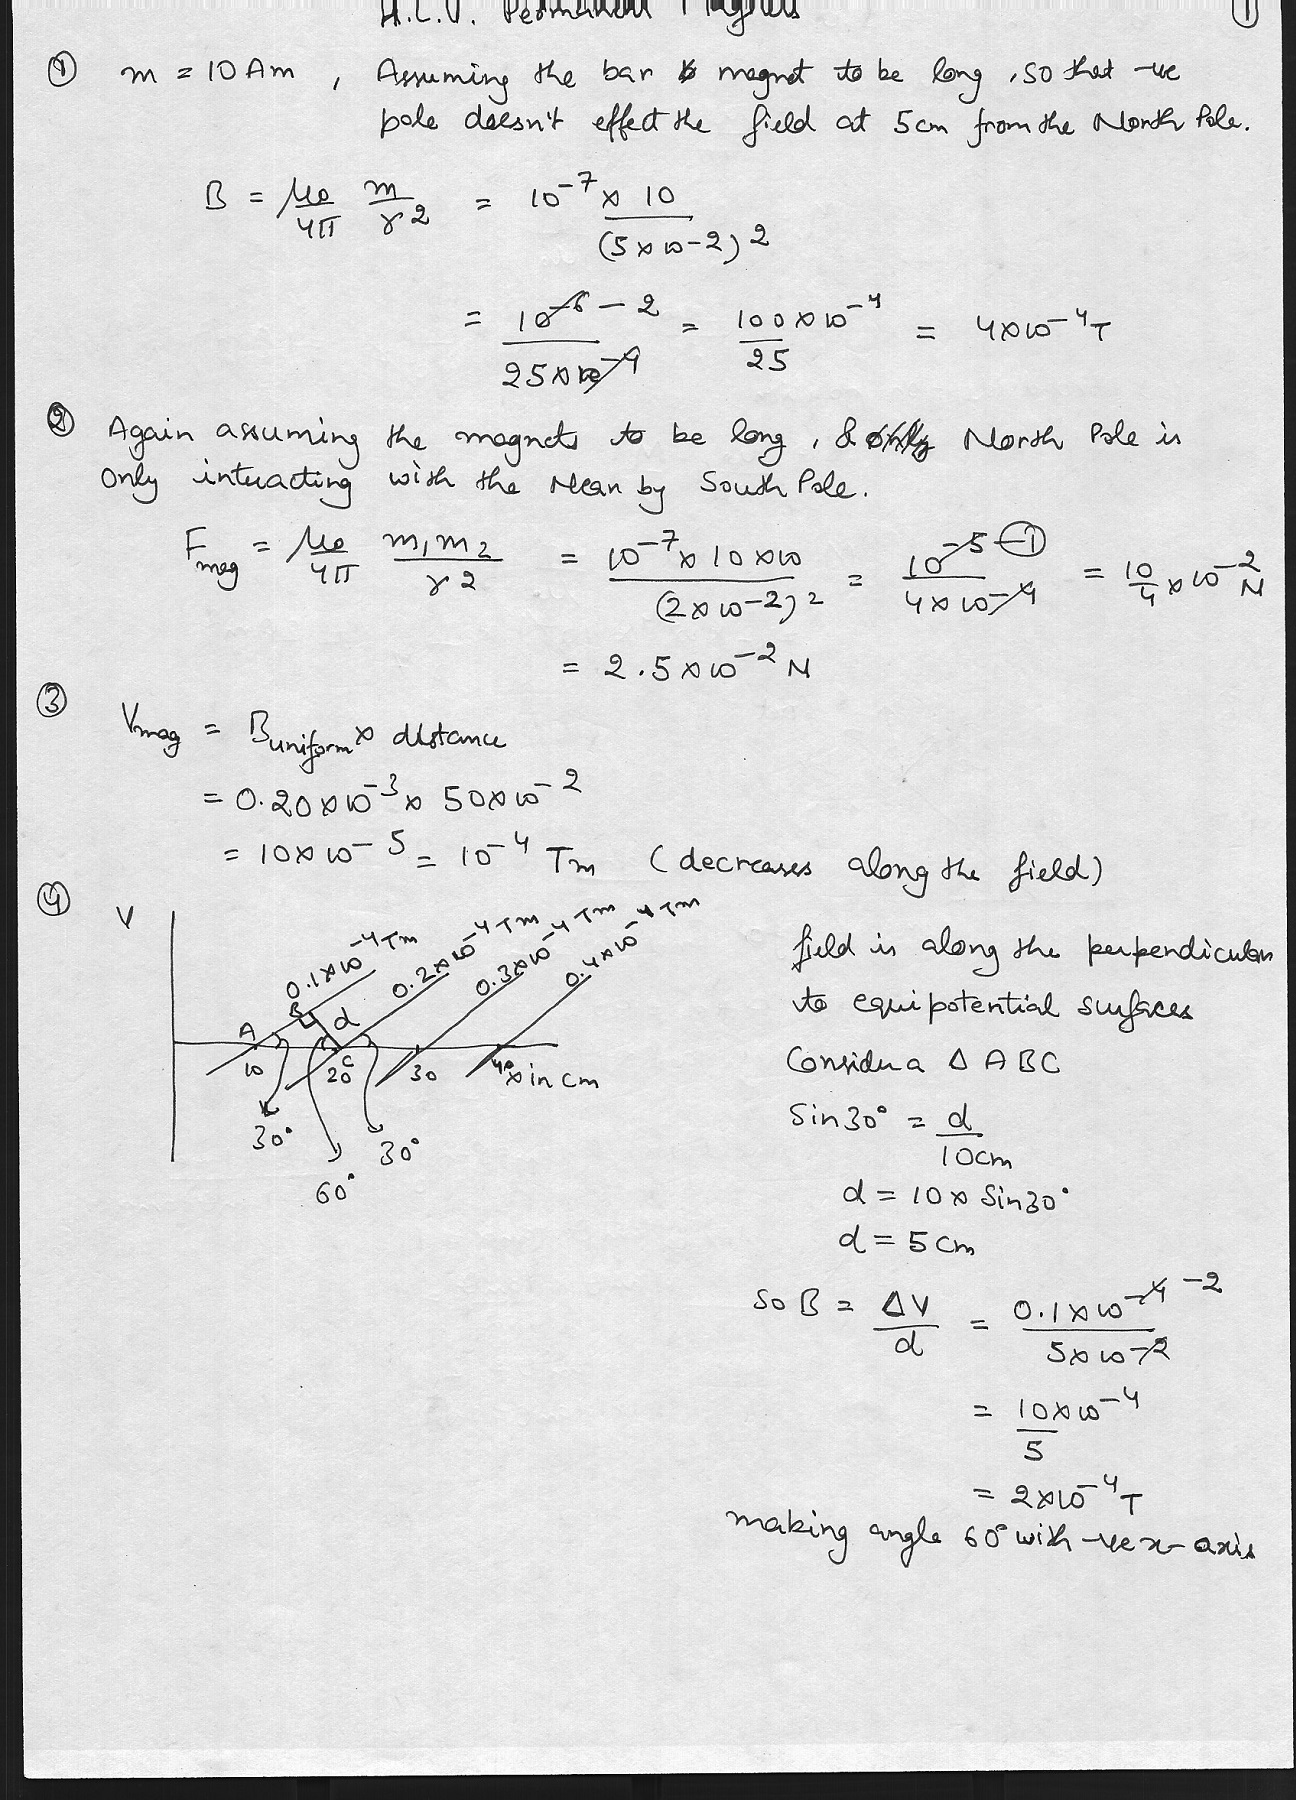 H.C.V. Permanent Magnets ①
① m = 10 Am , Assuming the bar magnet to be long , so that -ve
pole doesn't effect the field at 5cm from the North Pole.
B = μ0/4π m/r2 = 10-7 x 10/(5x10-2)2
= 10-6-2/25x10-4 = 100x10-4/25 = 4x10-4 T
② Again assuming the magnets to be long , & only North Pole is
only interacting with the Near by South Pole.
Fmag = μ0/4π m1m2/r2 = 10-7 x 10 x 10/(2x10-2)2 = 10-5-1/4x10-4 = 10/4 x 10-2 N
= 2.5x10-2 N
③ Vmag = Buniform x distance
= 0.20x10-3 x 50x10-2
= 10x10-5 = 10-4 Tm (decreases along the field)
④ V
0.1x10-4 Tm 0.2x10-4 Tm 0.3x10-4 Tm 0.4x10-4 Tm
A B d C
10 20 30 40 x in cm
30° 60° 30°
field is along the perpendicular
to equipotential surfaces
Consider a Δ ABC
Sin30° = d/10cm
d = 10x Sin30°
d = 5cm
So B = ΔV/d = 0.1x10-4 -2/5x10-2
= 10x10-4/5
= 2x10-4 T
making angle 60° with -ve x-axis